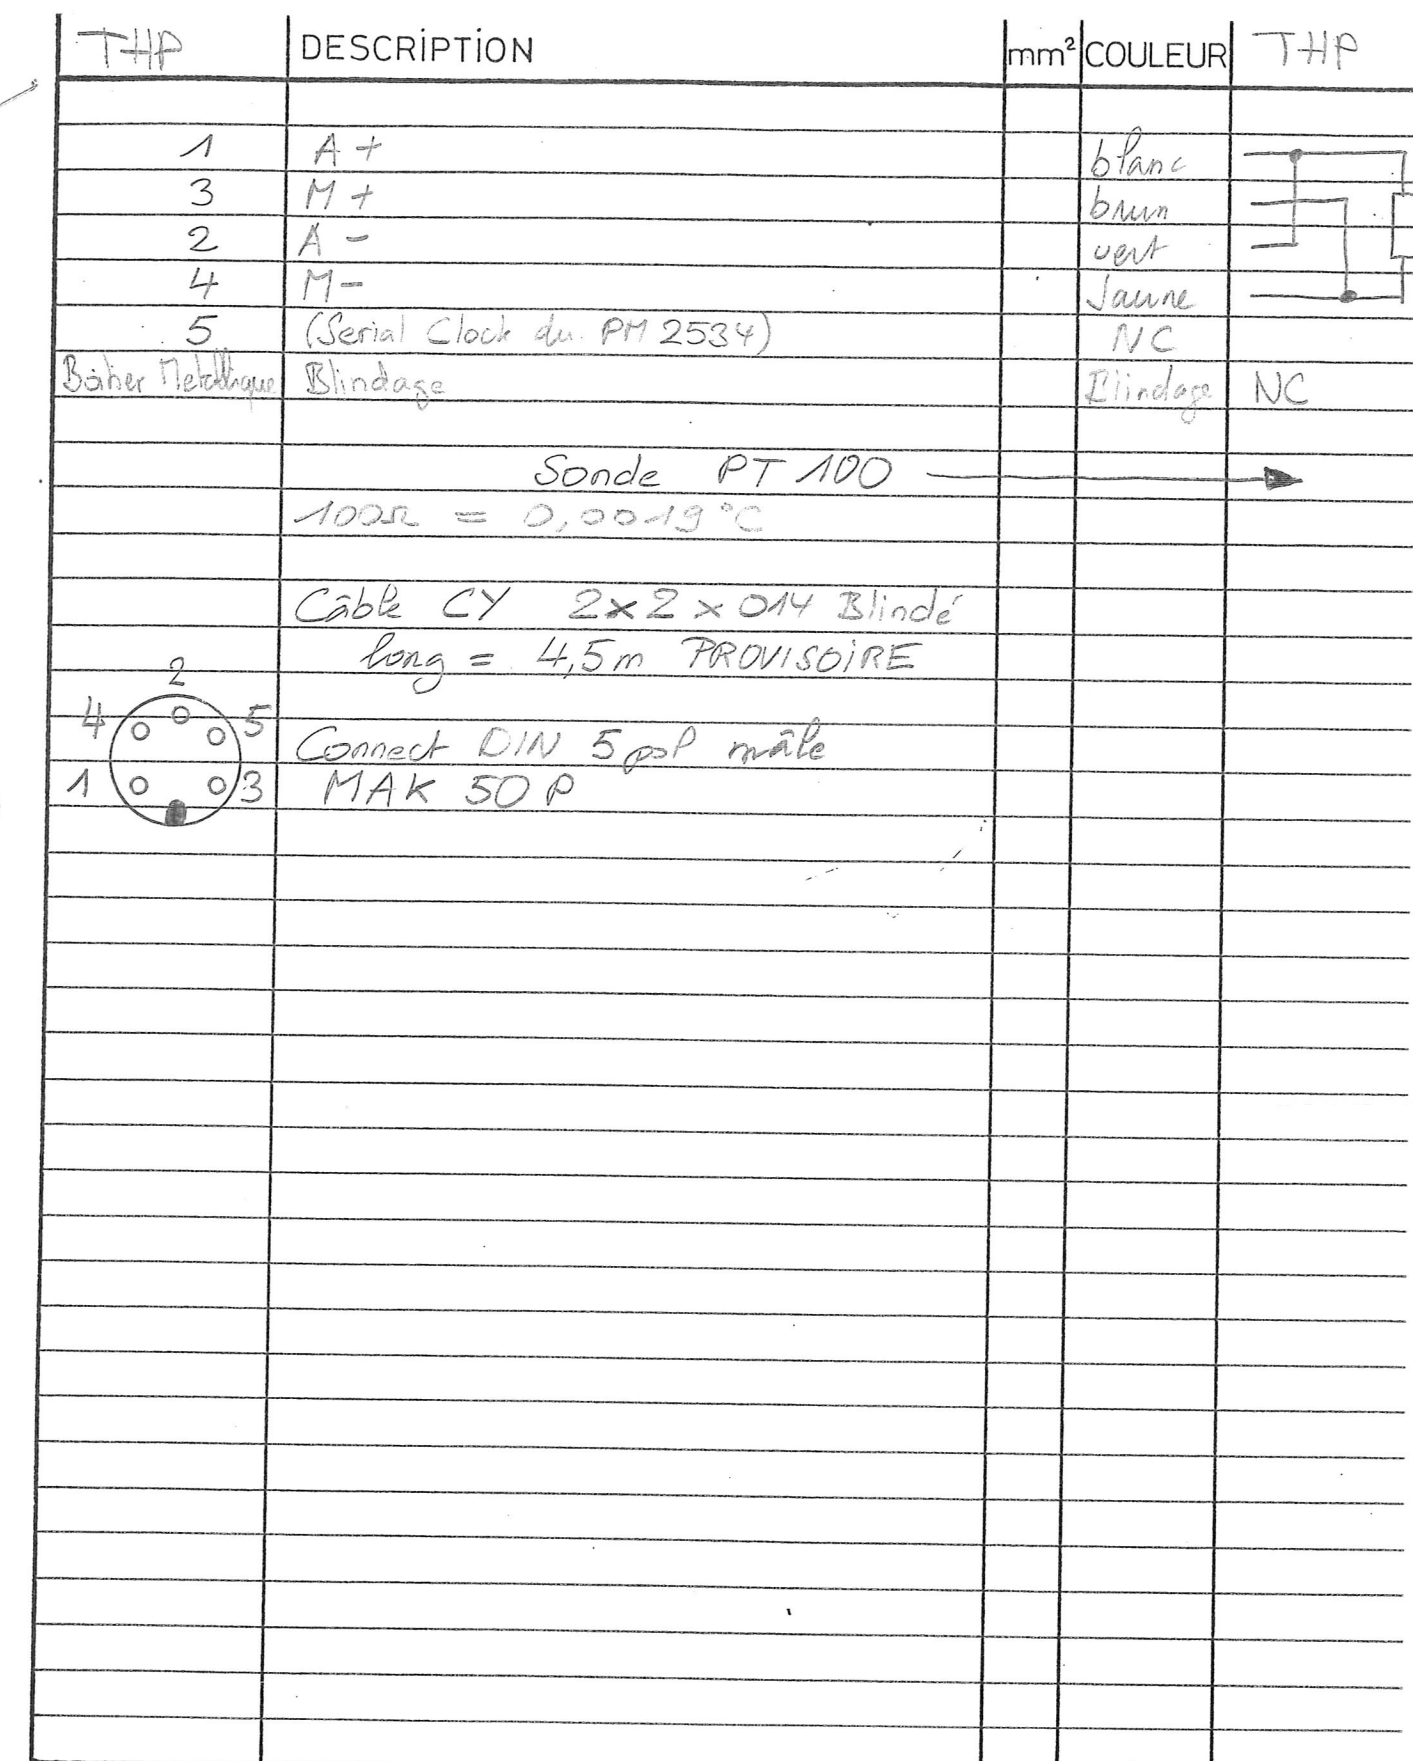 THP DESCRIPTION mm² COULEUR THP
1 A+ blanc
3 M+ brun
2 A- vert
4 M- Jaune
5 (Serial Clock du PM 2534) NC
Boitier Metallique Blindage Blindage NC
Sonde PT 100
100Ω = 0,0019°C
Câble CY 2x2x014 Blindé
long = 4,5m PROVISOIRE
2
4 5
Connect DIN 5 pol mâle
1 3 MAK 50 P